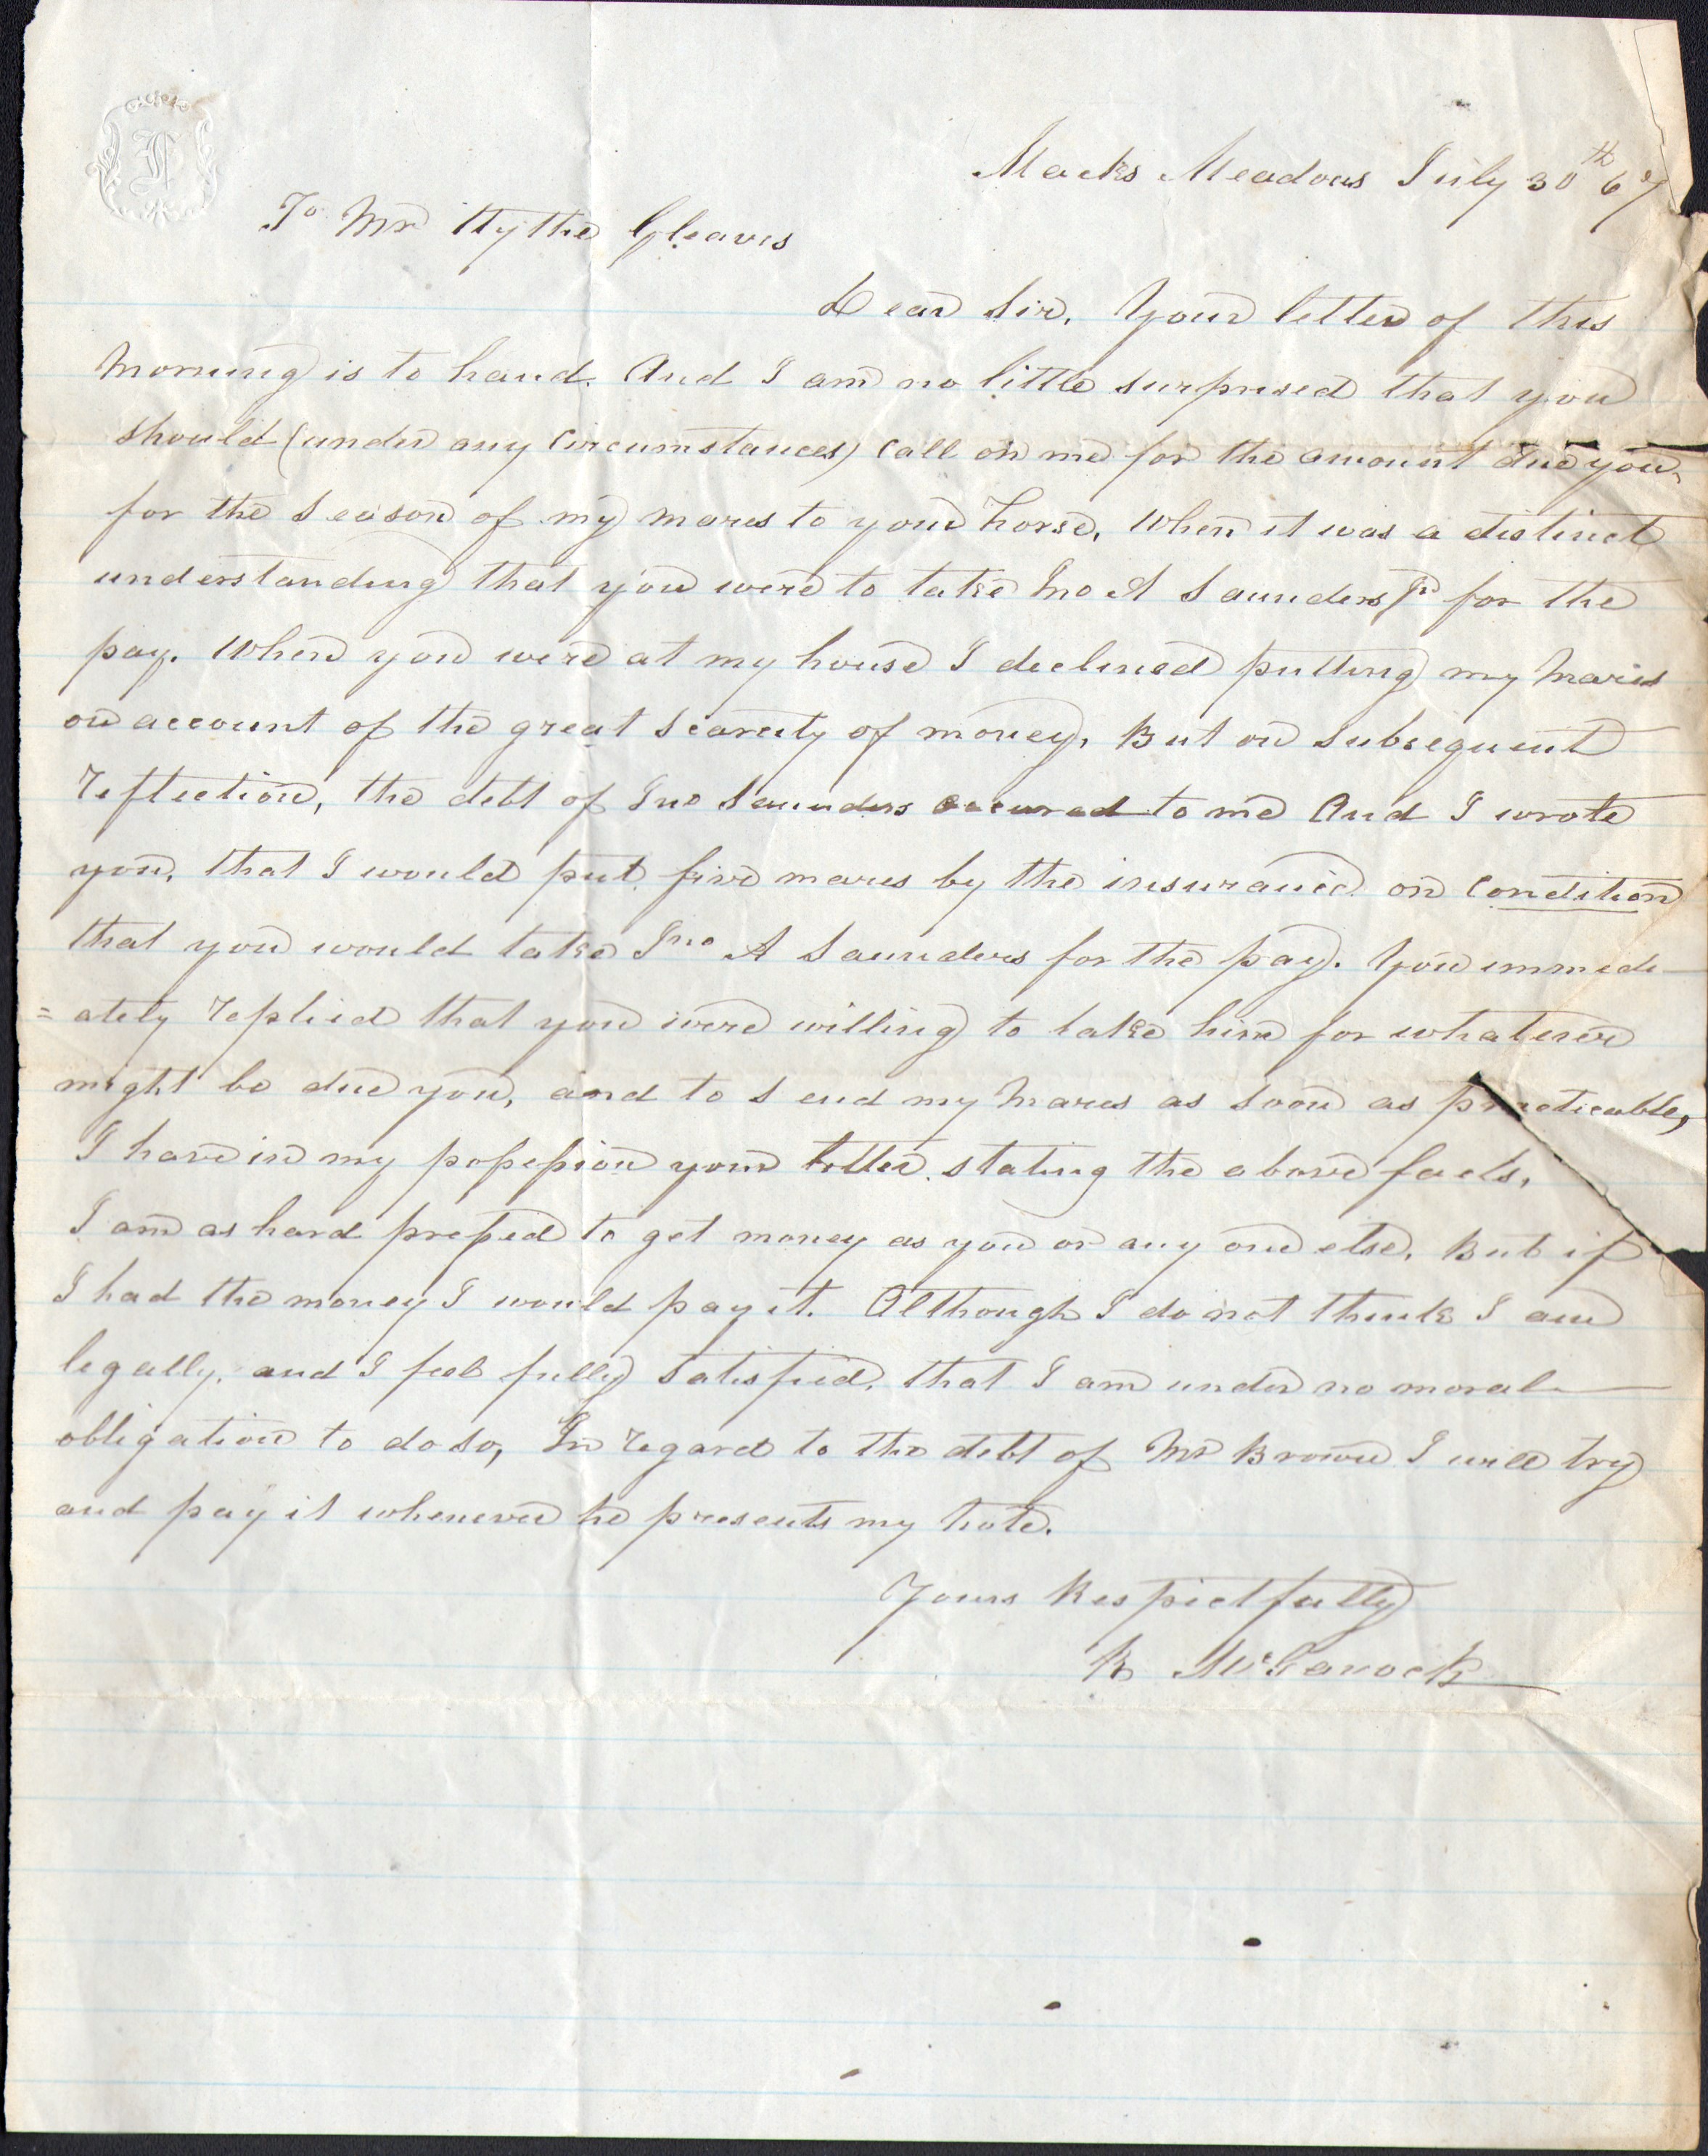 Macks Meadows July 30th 67
To Mr Wythe Gleaves
Dear Sir, Your letter of this
morning is to hand. And I am no little surprised that you
should (under any circumstances) call on me for the amount due you,
for the season of my mares to your horse, When it was a distinct
understanding that you were to take Jno A Saunders Jr for the
pay. When you were at my house I declined putting my mares
on account of the great scarcity of money, But on subsequent
reflection, the debt of Jno Saunders occured to me And I wrote
you, that I would put five mares by the insurance on condition
that you would take Jno A Saunders for the pay. You immedi-
=ately replied that you were willing to take him for whatever
might be due you, and to send my mares as soon as practicable,
I have in my possession your letter stating the above facts,
I am as hard pressed to get money as you or any one else, But if
I had the money I would pay it. Although I do not think I am
legally, and I feel fully satisfied, that I am under no moral
obligation to do so, In regard to the debt of Mr Brown I will try
and pay it whenever he presents my note.
Yours Respectfully
R McGavock